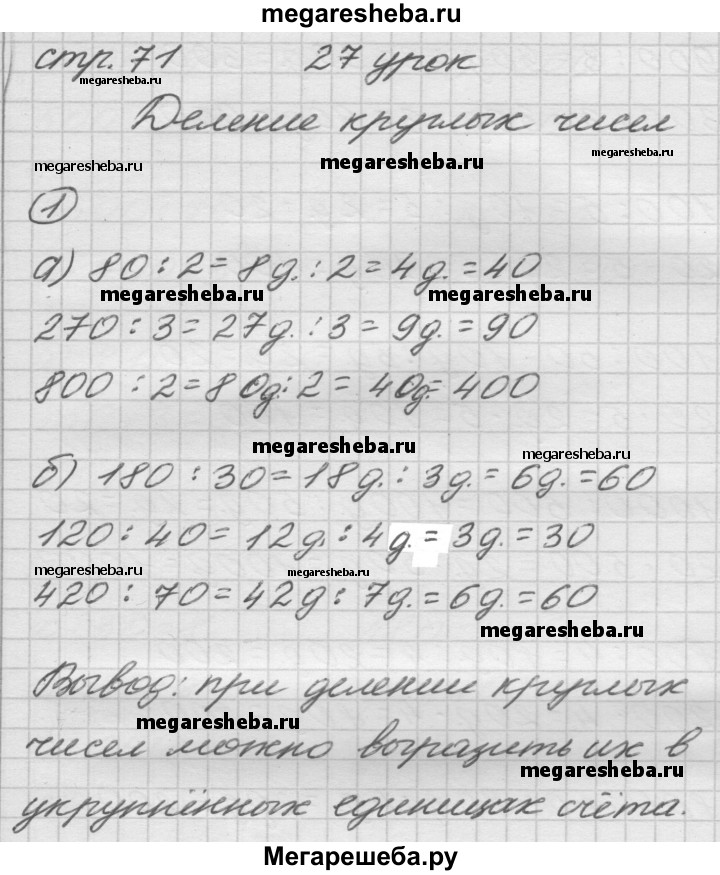 megaresheba.ru
стр. 71 27 урок
megaresheba.ru
Деление круглых чисел
megaresheba.ru megaresheba.ru megaresheba.ru
1
а) 80 : 2 = 8д. : 2 = 4д. = 40
megaresheba.ru megaresheba.ru
270 : 3 = 27д. : 3 = 9д. = 90
800 : 2 = 80д : 2 = 40д. = 400
megaresheba.ru megaresheba.ru
б) 180 : 30 = 18д. : 3д. = 6д. = 60
120 : 40 = 12д. : 4д. = 3д. = 30
megaresheba.ru megaresheba.ru
420 : 70 = 42д : 7д. = 6д. = 60
megaresheba.ru
Вывод: при делении круглых
megaresheba.ru
чисел можно выразить их в
megaresheba.ru
укрупнённых единицах счёта.
Мегарешеба.ру